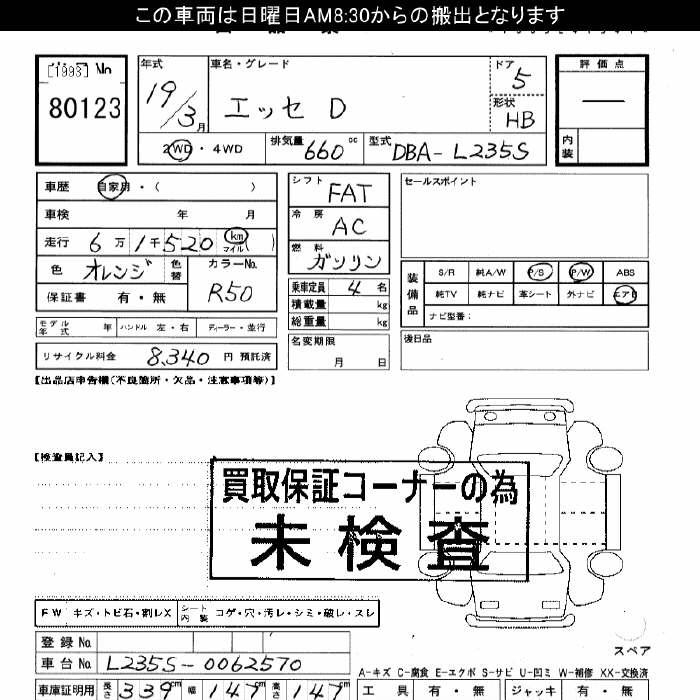 この車両は日曜日AM8:30からの搬出となります
[1993] No
80123
年式 19/3月
車名・グレード エッセ D
ドア 5
形状 HB
評価点 —
内装
2WD・4WD
排気量 660 cc
型式 DBA-L235S
車歴 自家用・( )
車検 年 月
走行 6万1千520 km マイル ( )
色 オレンジ 色替
カラーNo. R50
保証書 有・無
シフト FAT
冷房 AC
燃料 ガソリン
乗車定員 4 名
積載量 kg
総重量 kg
セールスポイント
装備品
S/R 純A/W P/S P/W ABS
純TV 純ナビ 革シート 外ナビ エアB
ナビ型番:
モデル年式 年 ハンドル 左・右 ディーラー・並行
名変期限 月 日
後日品
リサイクル料金 8,340 円 預託済
【出品店申告欄(不良箇所・欠品・注意事項等)】
【検査員記入】
買取保証コーナーの為
未検査
FW キズ・トビ石・割レX
シート内装 コゲ・穴・汚レ・シミ・破レ・スレ
スペア
登録 No.
車台 No. L235S-0062570
A-キズ C-腐食 E-エクボ S-サビ U-凹ミ W-補修 XX-交換済
車庫証明用 長さ 339cm 幅 147cm 高さ 147cm
工具 有・無 ジャッキ 有・無